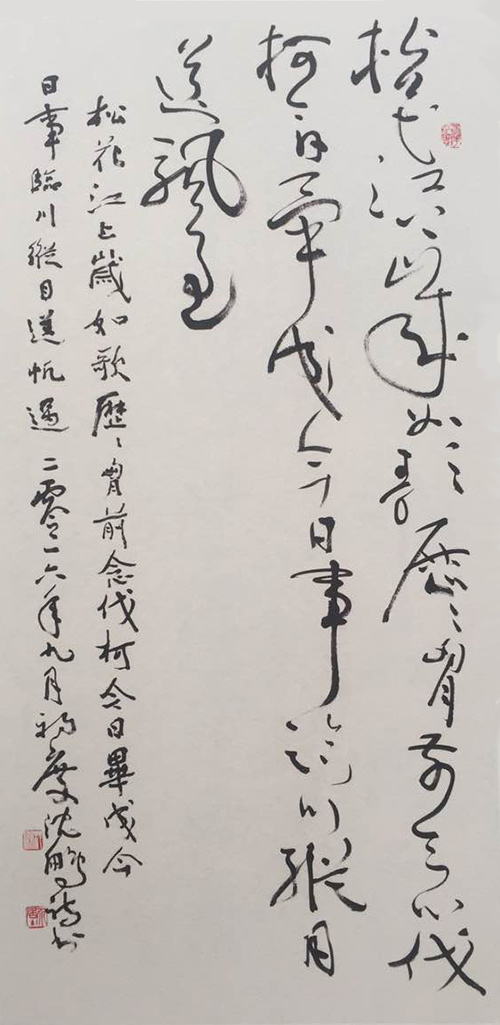 松花江上歲如歌歷〻胷前念伐
柯今日畢成今日事臨川縱目
送帆過
松花江上歲如歌歷〻胷前念伐柯今日畢成今
日事臨川縱目送帆過 二零一六年九月 沈鵬詩書